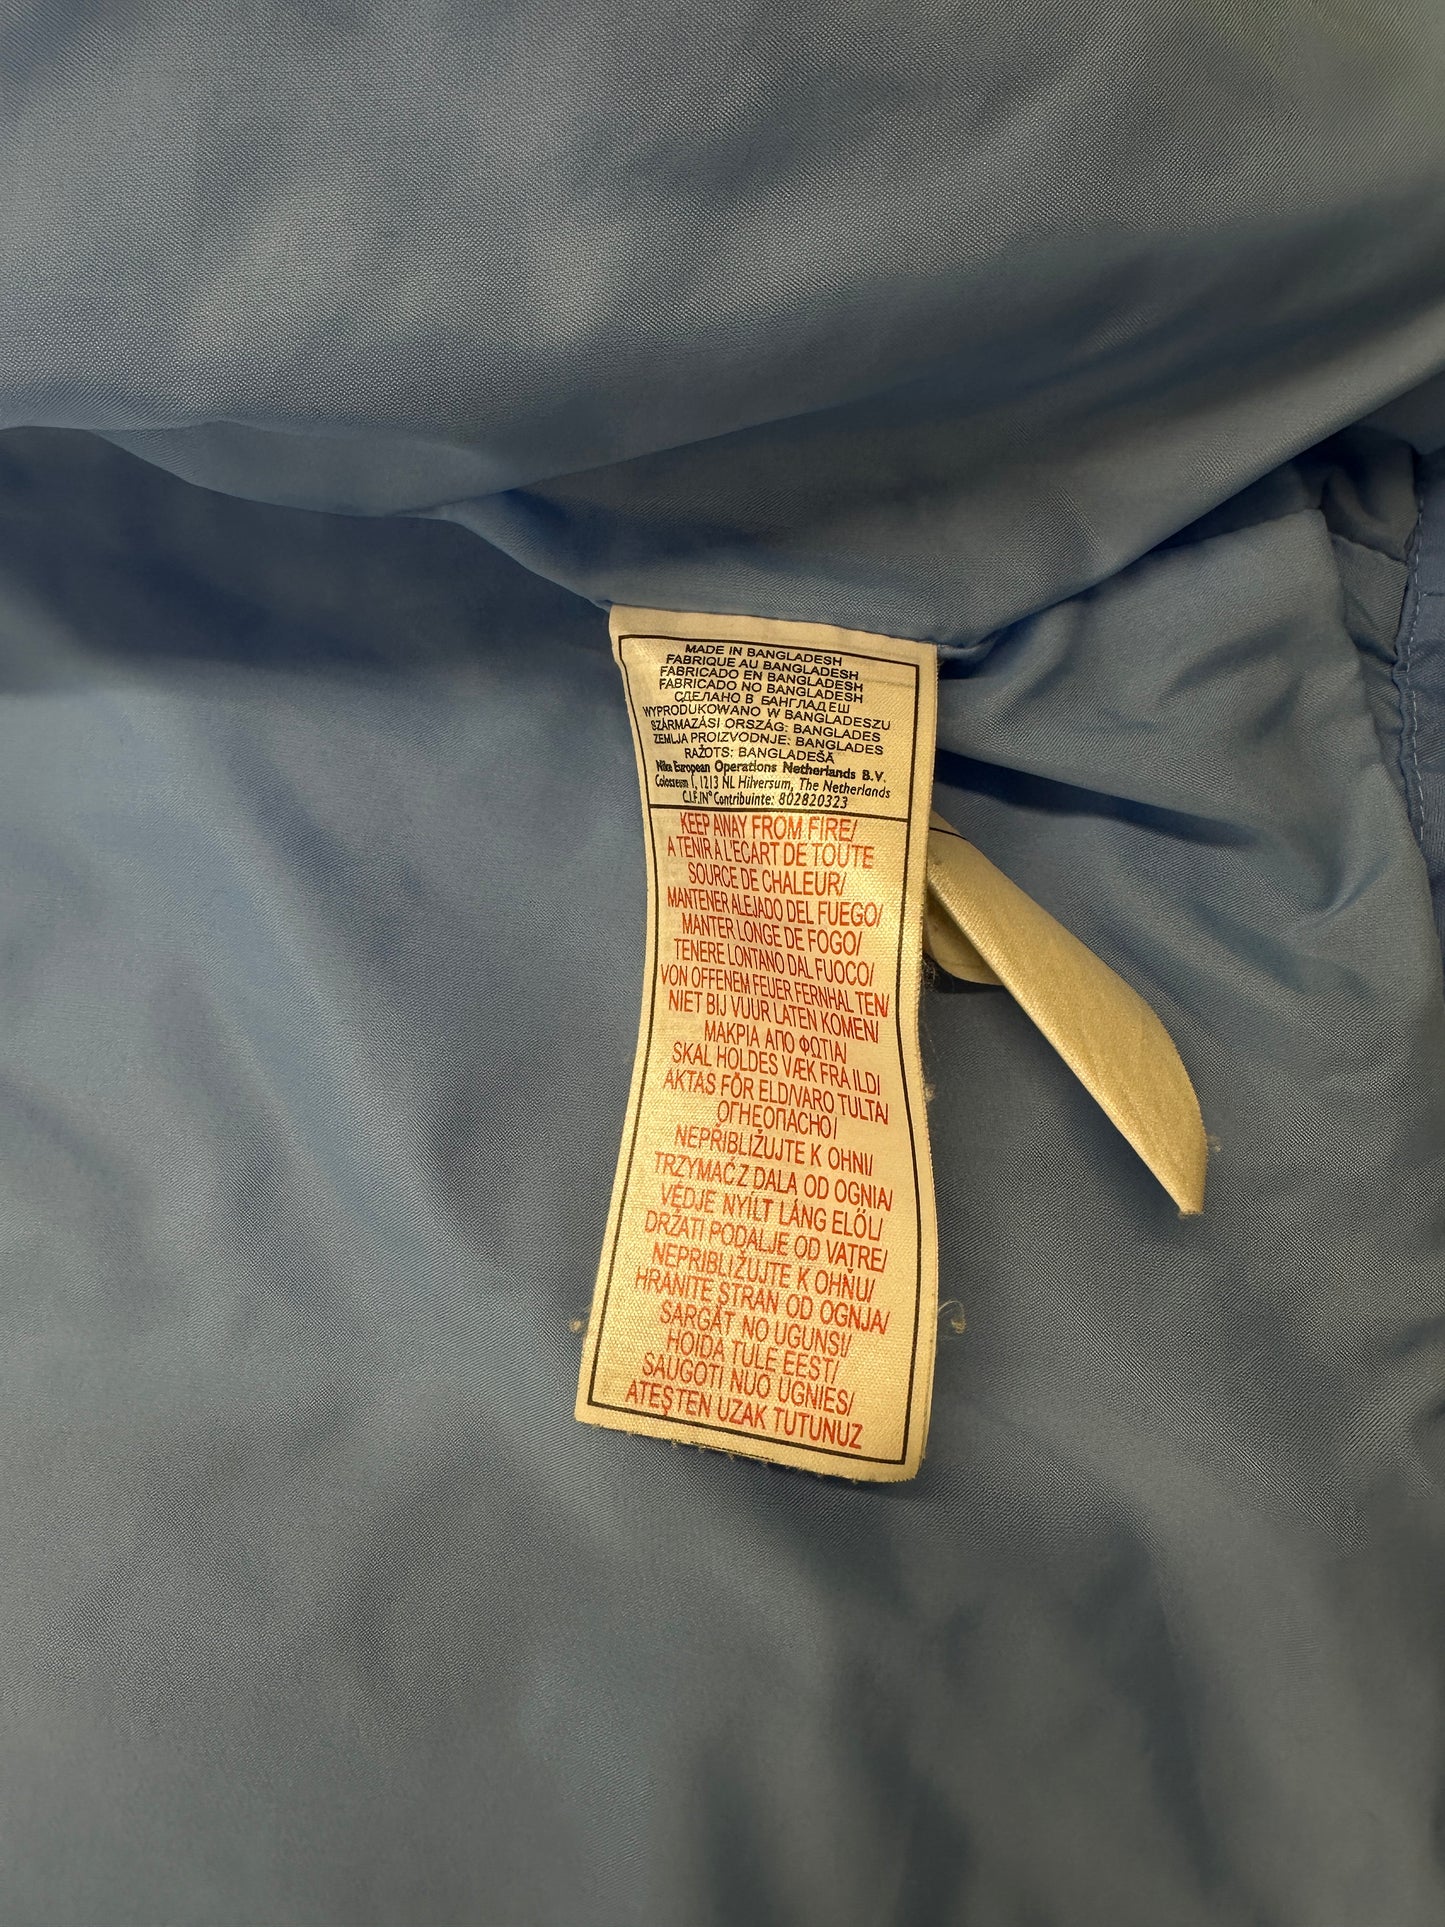 MADE IN BANGLADESH
FABRIQUE AU BANGLADESH
FABRICADO EN BANGLADESH
FABRICADO NO BANGLADESH
СДЕЛАНО В БАНГЛАДЕШ
WYPRODUKOWANO W BANGLADESZU
SZÁRMAZÁSI ORSZÁG: BANGLADES
ZEMLJA PROIZVODNJE: BANGLADES
RAŽOTS: BANGLADEŠĀ
Nike European Operations Netherlands B.V.
Colosseum 1, 1213 NL Hilversum, The Netherlands
C.I.F./N° Contribuinte: 802820323
KEEP AWAY FROM FIRE/
A TENIR À L'ECART DE TOUTE
SOURCE DE CHALEUR/
MANTENER ALEJADO DEL FUEGO/
MANTER LONGE DE FOGO/
TENERE LONTANO DAL FUOCO/
VON OFFENEM FEUER FERNHALTEN/
NIET BIJ VUUR LATEN KOMEN/
ΜΑΚΡΙΑ ΑΠΟ ΦΩΤΙΑ/
SKAL HOLDES VÆK FRA ILD/
AKTAS FÖR ELD/VARO TULTA/
ОГНЕОПАСНО/
NEPŘIBLIŽUJTE K OHNI/
TRZYMAĆ Z DALA OD OGNIA/
VÉDJE NYÍLT LÁNG ELŐL/
DRŽATI PODALJE OD VATRE/
NEPRIBLIŽUJTE K OHŇU/
HRANITE STRAN OD OGNJA/
SARGĀT NO UGUNS/
HOIDA TULE EEST/
SAUGOTI NUO UGNIES/
ATEŞTEN UZAK TUTUNUZ